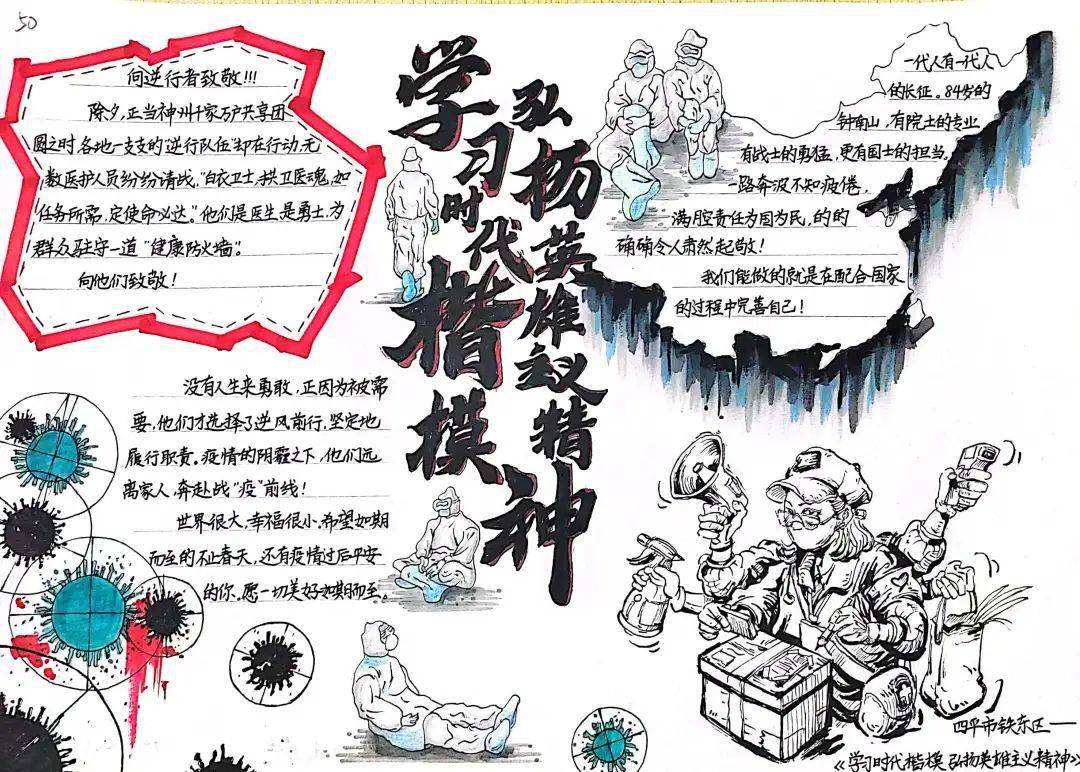 50
向逆行者致敬!!!
除夕,正当神州千家万户共享团
圆之时,各地一支支的逆行队伍却在行动,无
数医护人员纷纷请战,"白衣卫士,拱卫医魂,如
任务所需,定使命必达。"他们是医生是勇士,为
群众驻守一道"健康防火墙"。
向他们致敬!
学习时代楷模
弘扬英雄主义精神
一代人有一代人
的长征。84岁的
钟南山,有院士的专业
有战士的勇猛,更有国士的担当。
一路奔波不知疲倦,
满腔责任为国为民,的的
确确令人肃然起敬!
我们能做的就是在配合国家
的过程中完善自己!
没有人生来勇敢,正因为被需
要,他们才选择了逆风前行,坚定地
履行职责。疫情的阴霾之下,他们远
离家人,奔赴战"疫"前线!
世界很大,幸福很小,希望如期
而至的不止春天,还有疫情过后平安
的你,愿一切美好如期而至。
四平市铁东区——
《学习时代楷模 弘扬英雄主义精神》